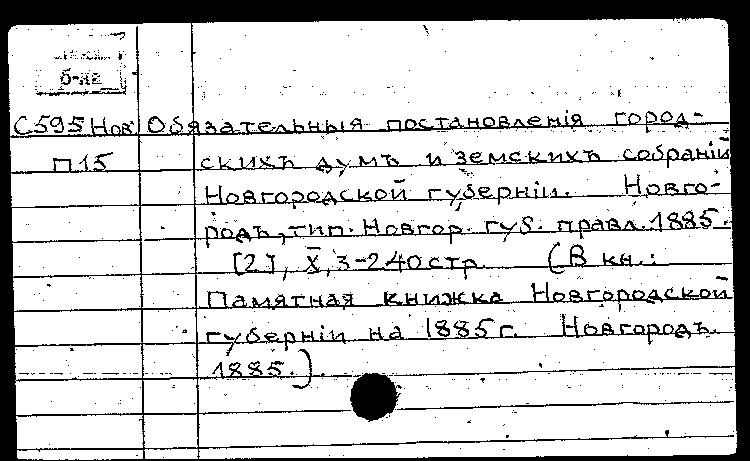 б-ка
С595Нов Обязательныя постановленія город-
П15 скихъ думъ и земскихъ собраній
Новгородской губерніи. Новго-
родъ, тип. Новгор. губ. правл. 1885.
[2], X, 3-240 стр. (В кн.:
Памятная книжка Новгородской
губерніи на 1885 г. Новгородъ.
1885.).